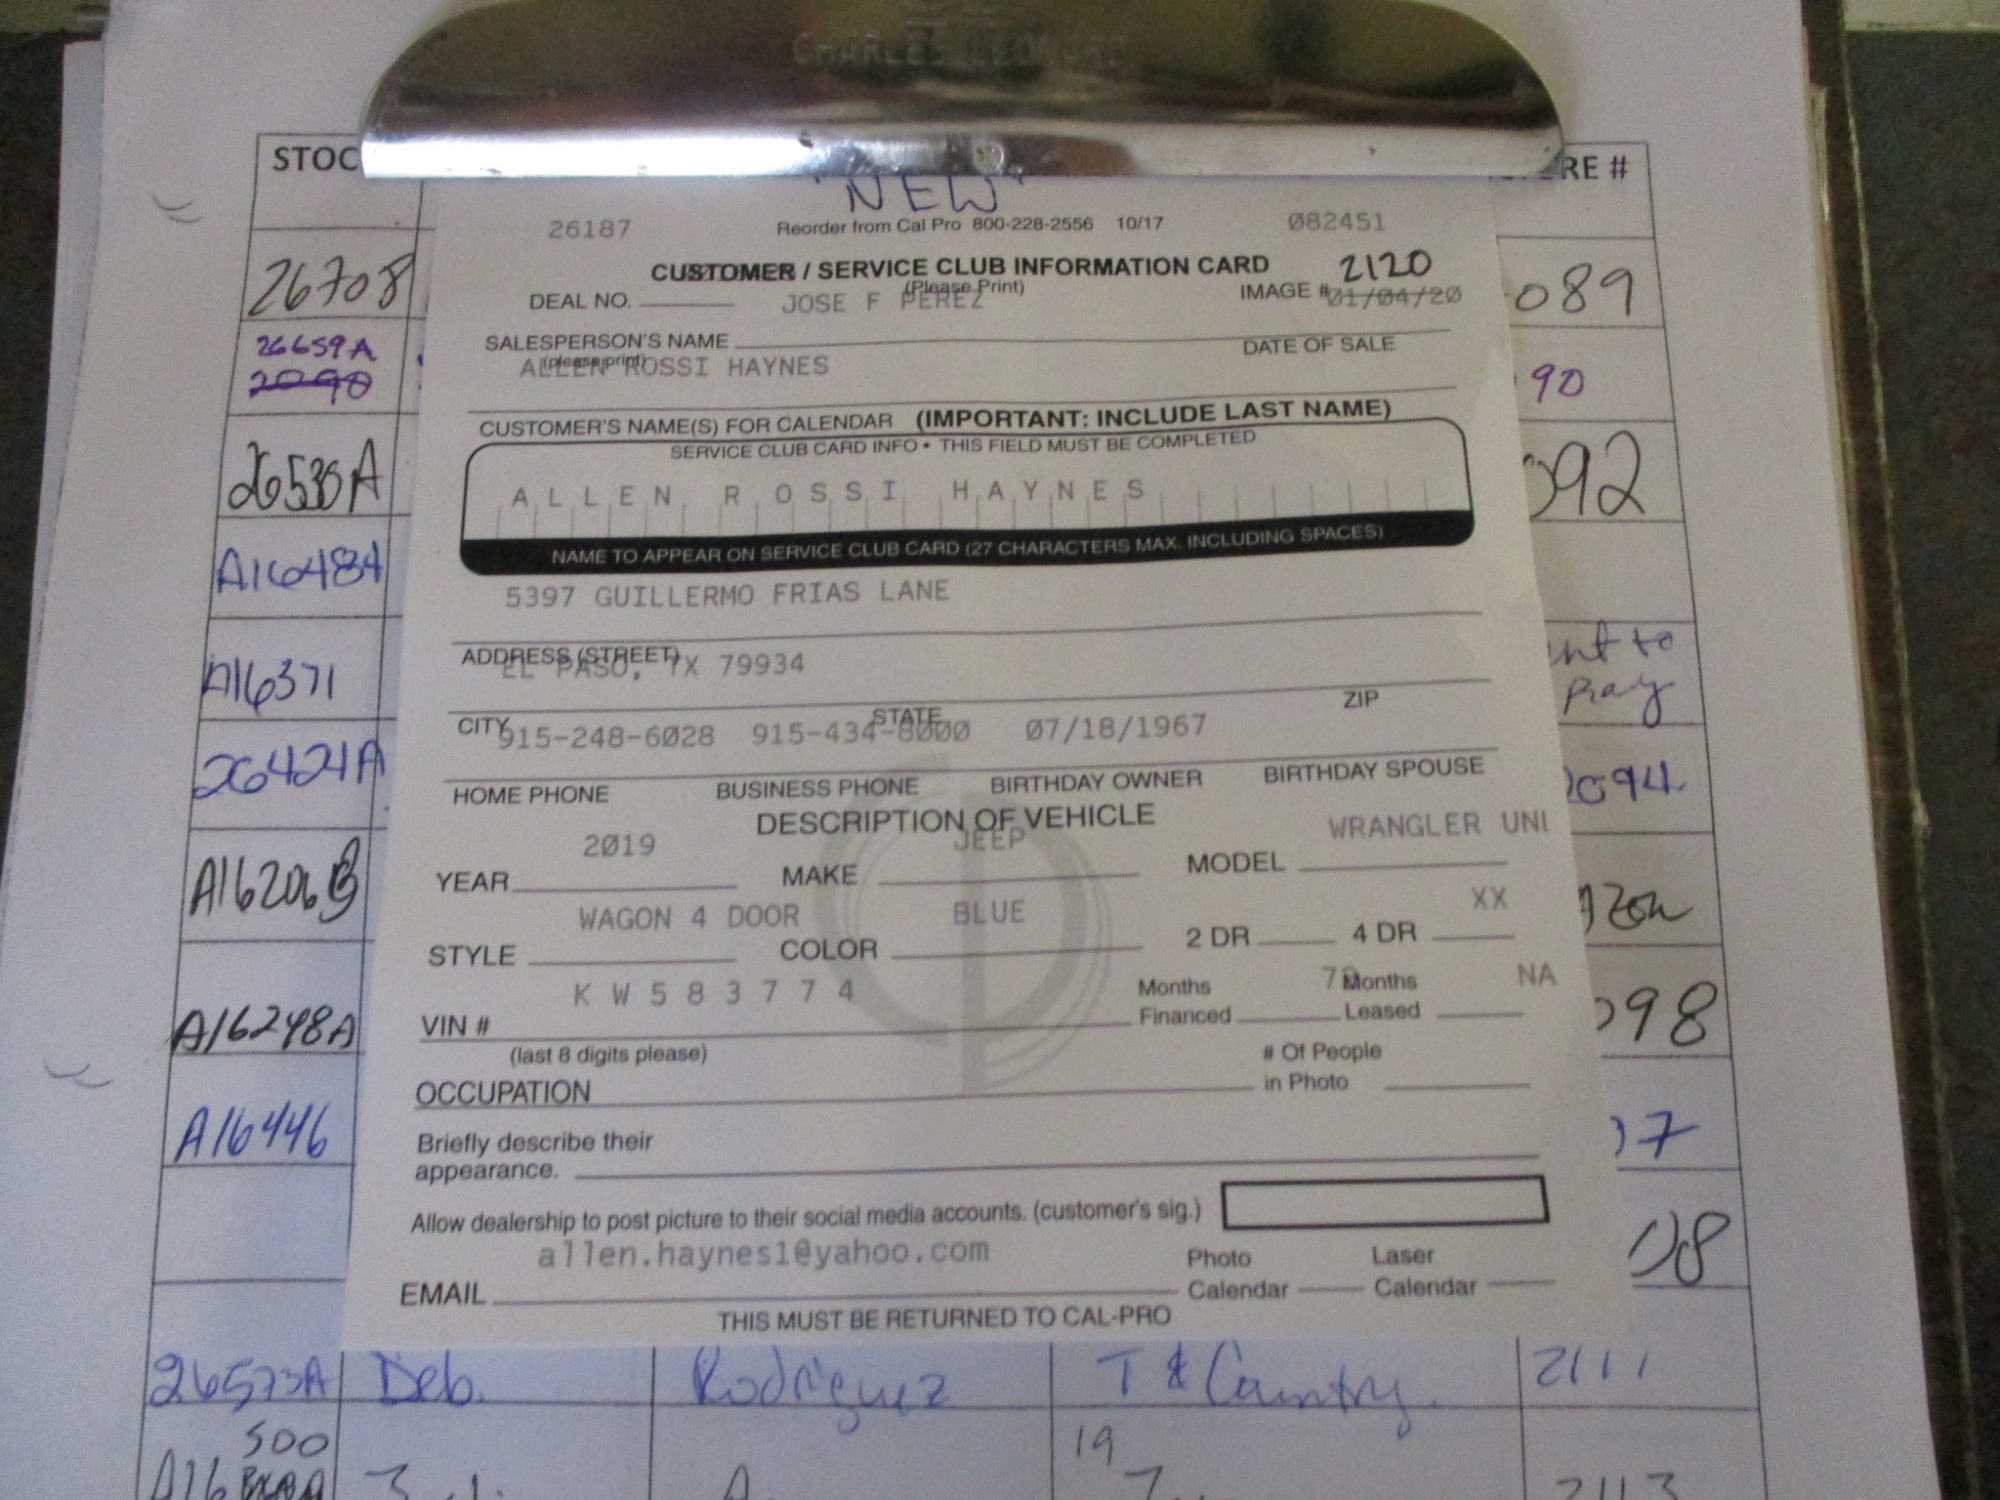 CHARLES LEONARD
STOC
RE #
"NEW"
26187
Reorder from Cal Pro 800-228-2556 10/17
082451
CUSTOMER / SERVICE CLUB INFORMATION CARD
2120
(Please Print)
DEAL NO.
JOSE F PEREZ
IMAGE #
01/04/20
SALESPERSON'S NAME
DATE OF SALE
(please print)
ALLEN ROSSI HAYNES
CUSTOMER'S NAME(S) FOR CALENDAR (IMPORTANT: INCLUDE LAST NAME)
SERVICE CLUB CARD INFO • THIS FIELD MUST BE COMPLETED
ALLEN ROSSI HAYNES
NAME TO APPEAR ON SERVICE CLUB CARD (27 CHARACTERS MAX. INCLUDING SPACES)
5397 GUILLERMO FRIAS LANE
ADDRESS (STREET)
EL PASO, TX 79934
CITY STATE ZIP
915-248-6028 915-434-8000 07/18/1967
HOME PHONE BUSINESS PHONE BIRTHDAY OWNER BIRTHDAY SPOUSE
DESCRIPTION OF VEHICLE
2019 JEEP WRANGLER UNI
YEAR MAKE MODEL
WAGON 4 DOOR BLUE XX
STYLE COLOR 2 DR 4 DR
K W 5 8 3 7 7 4
Months Months NA
VIN # Financed Leased
(last 8 digits please)
# Of People
OCCUPATION in Photo
Briefly describe their
appearance.
Allow dealership to post picture to their social media accounts. (customer's sig.)
allen.haynes1@yahoo.com
Photo Laser
EMAIL Calendar Calendar
THIS MUST BE RETURNED TO CAL-PRO
26708
089
26659A
2090
90
26530A
092
A16484
A16371
nt to
Pray
26424A
2094
A16206B
A16248A
098
A16446
7
08
26573A Deb. Rodriguez T & Country. 2111
500
19
A16
2113